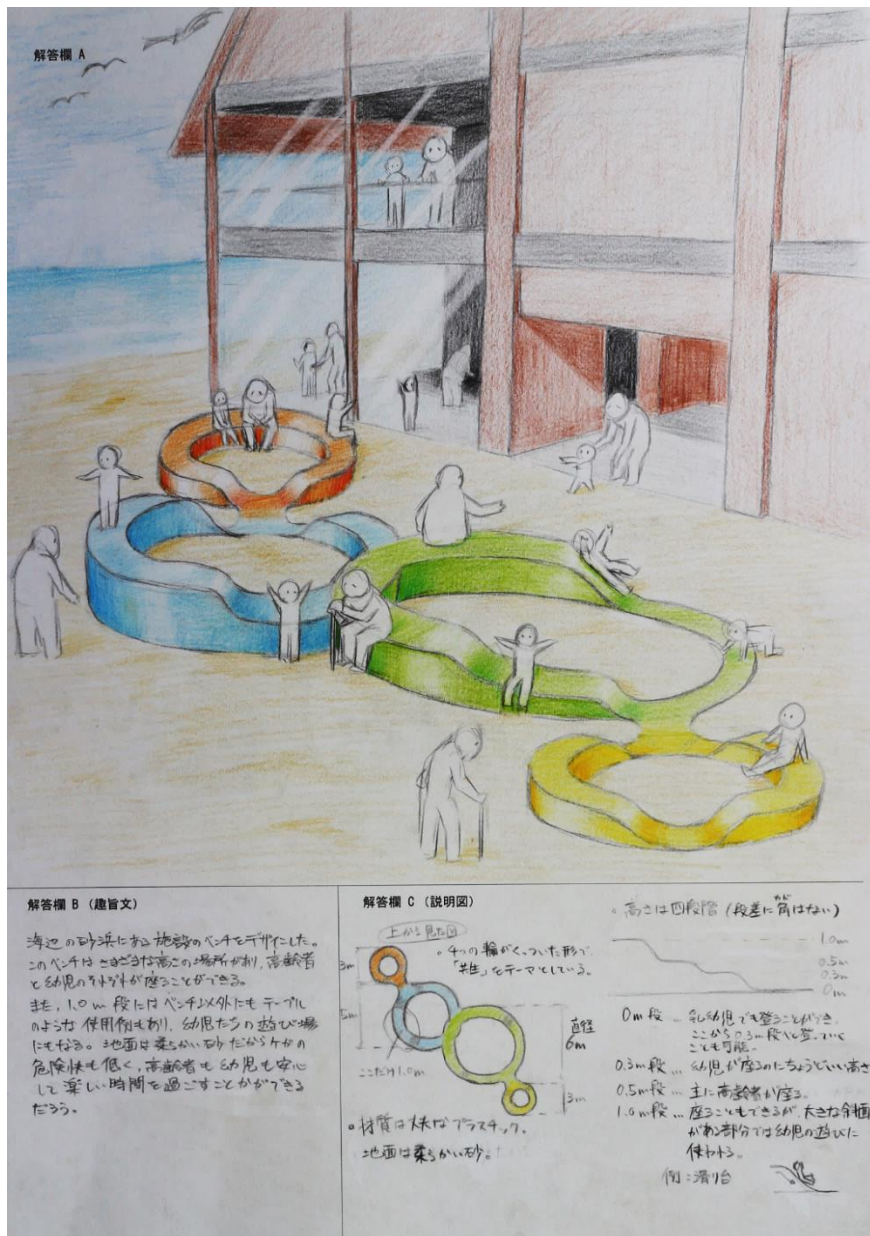 解答欄 A
解答欄 B (趣旨文)
海辺の砂浜にある施設のベンチをデザインした。
このベンチはさまざまな高さの場所があり、高齢者
と幼児のそれぞれが座ることができる。
また、1.0m 段にはベンチ以外にもテーブル
のような使用例もあり、幼児たちの遊び場
にもなる。地面は柔らかい砂だからケガの
危険性も低く、高齢者も幼児も安心
して楽しい時間を過ごすことがができる
だろう。
解答欄 C (説明図)
上から見た図
3m
5m
ここだけ1.0m
直径
6m
3m
。4つの輪がくっついた形で、
をテーマとしている。
。材質は丈夫なプラスチック。
地面は柔らかい砂。
。高さは四段階 (段差に角はない)
かど
1.0m
0.5m
0.3m
0m
0m段 … 乳幼児でも登ることができ、
ここから0.3m段へと登っていく
ことも可能。
0.3m段 … 幼児が座るのにちょうどいい高さ
0.5m段 … 主に高齢者が座る。
1.0m段 … 座ることもできるが、大きな斜面
がある部分では幼児の遊びに
使われる。
例：滑り台